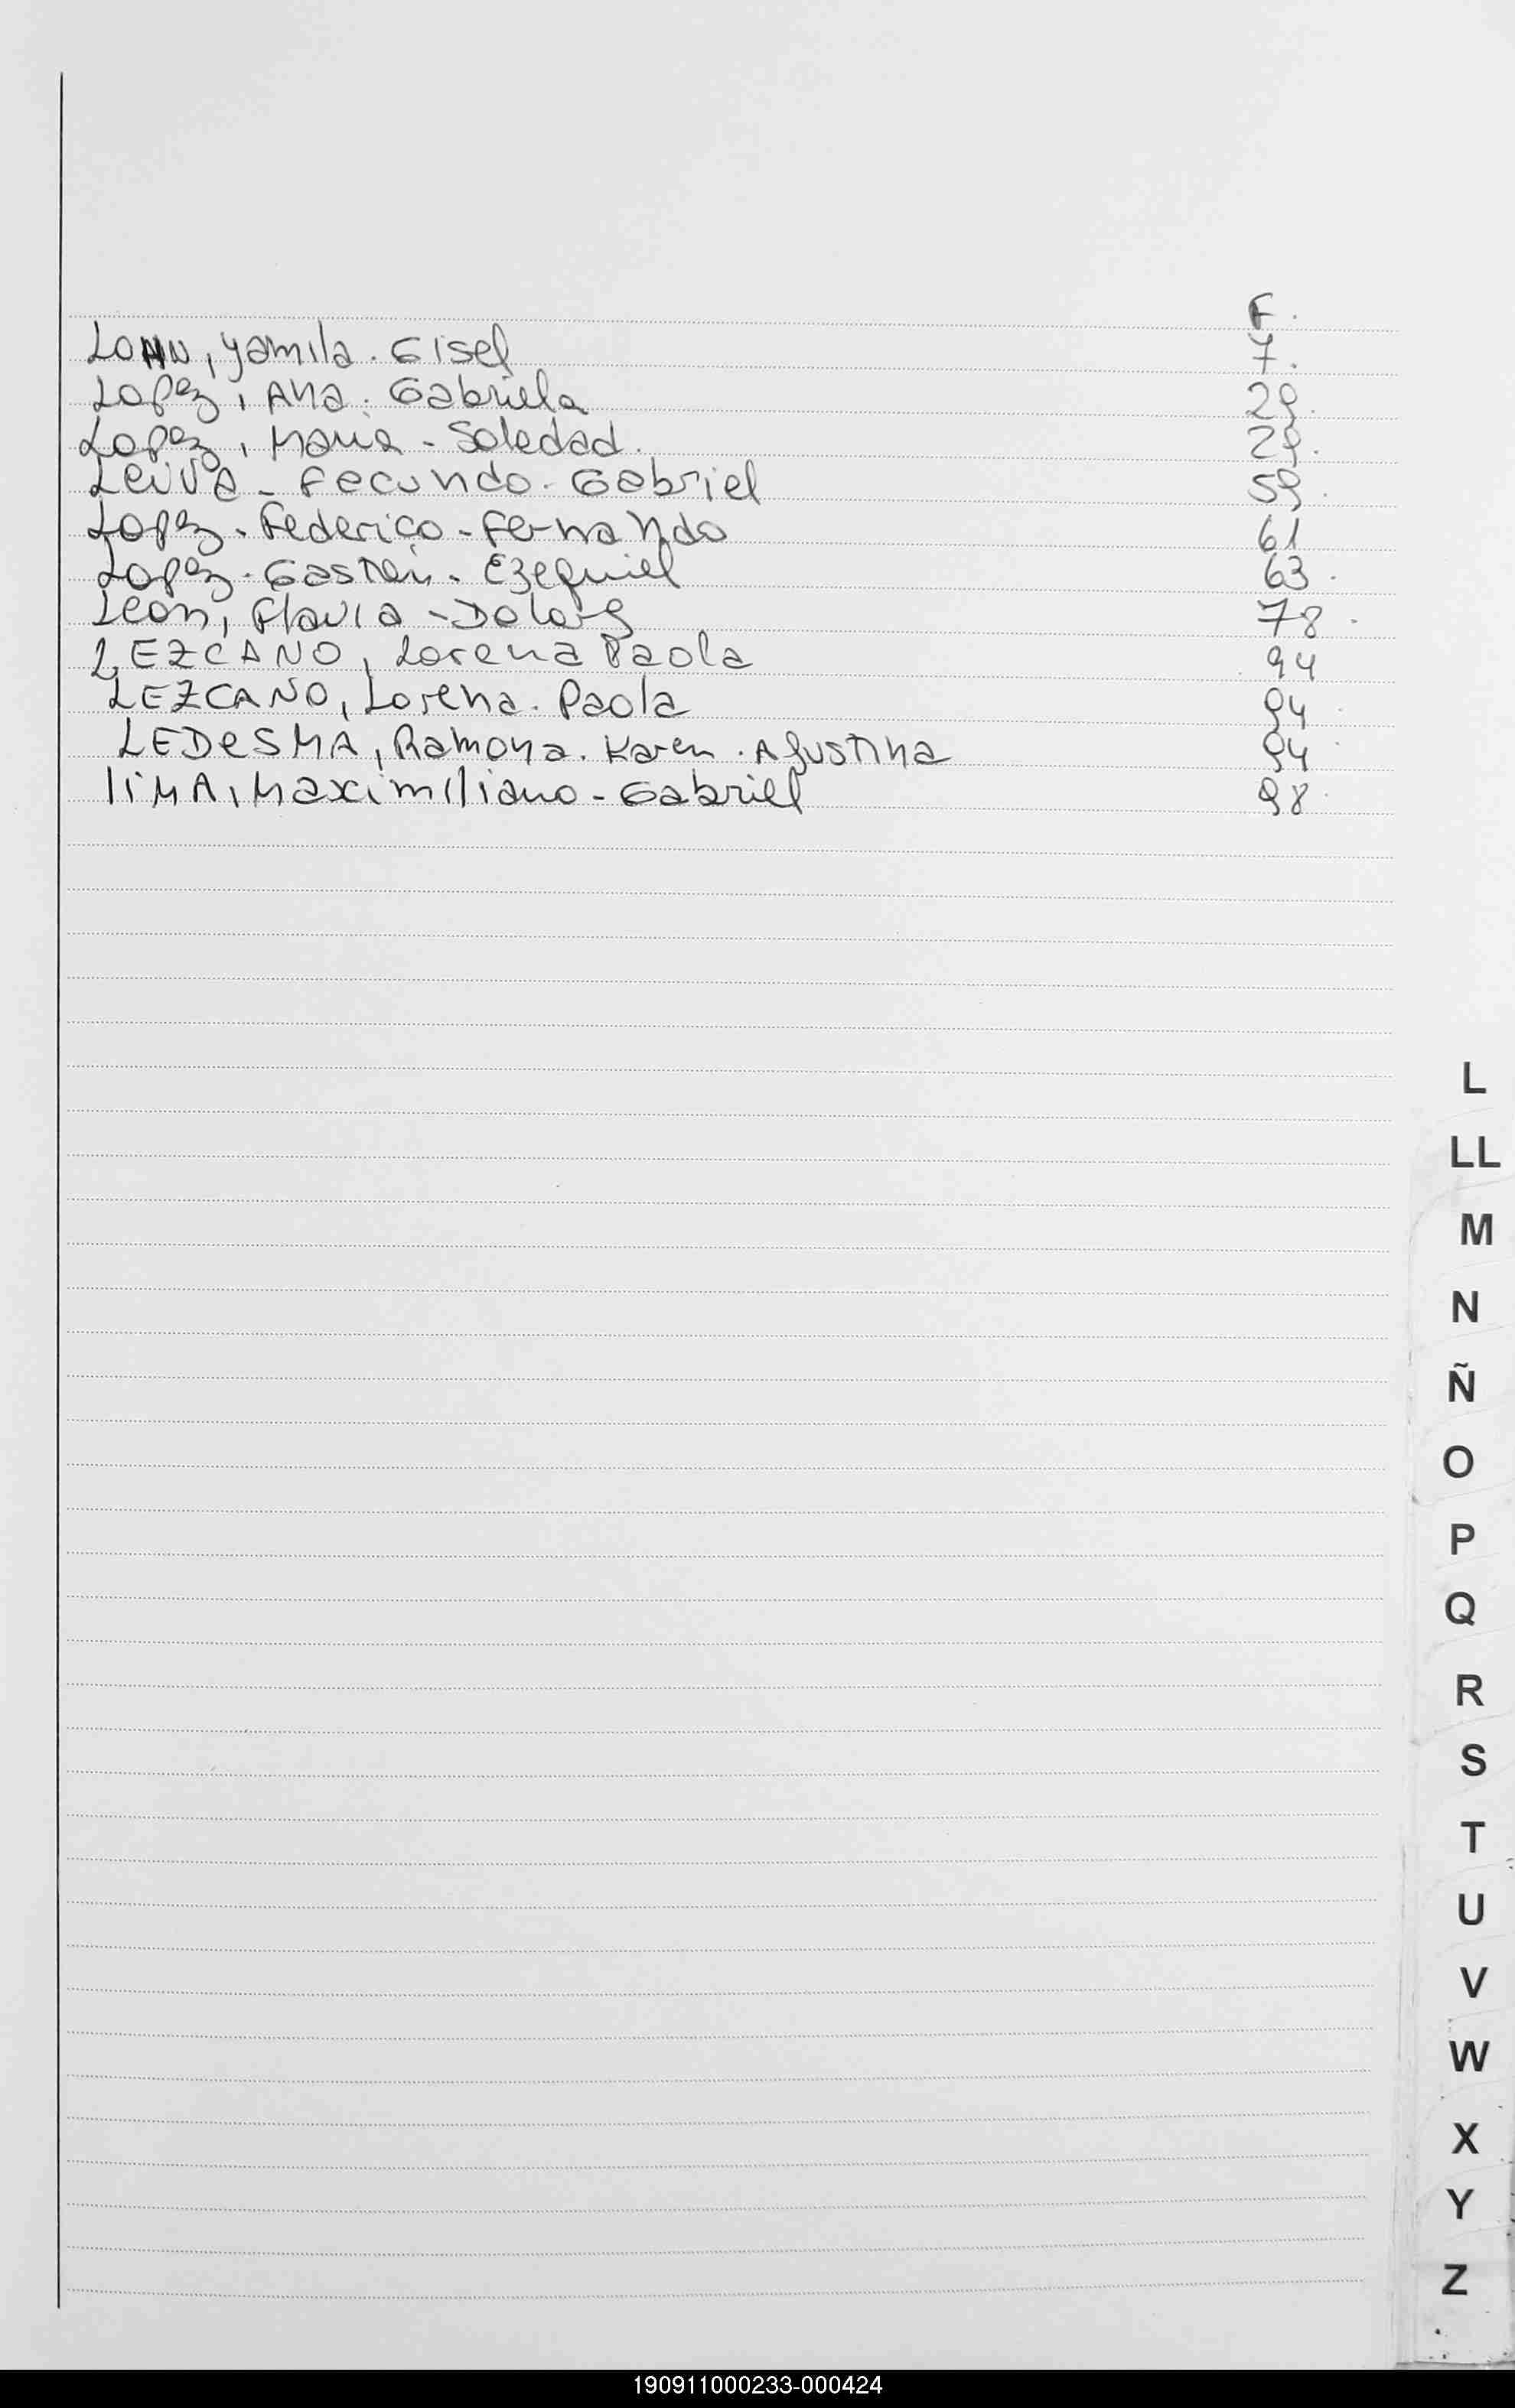 F.
LOHN, Yamila. Gisel 7.
Lopez, Ana. Gabriela 29.
Lopez, Maria - Soledad. 29.
Leiva - Facundo. Gabriel 59.
Lopez. Federico - Fernando 61
Lopez. Gaston. Ezequiel 63.
Leon, Flavia - Dolores 78.
LEZCANO, Lorena Paola 94
LEZCANO, Lorena. Paola 94.
LEDeSMA, Ramona. Karen. Agustina 94.
liMA, Maximiliano - Gabriel 98.
L
LL
M
N
Ñ
O
P
Q
R
S
T
U
V
W
X
Y
Z
190911000233-000424